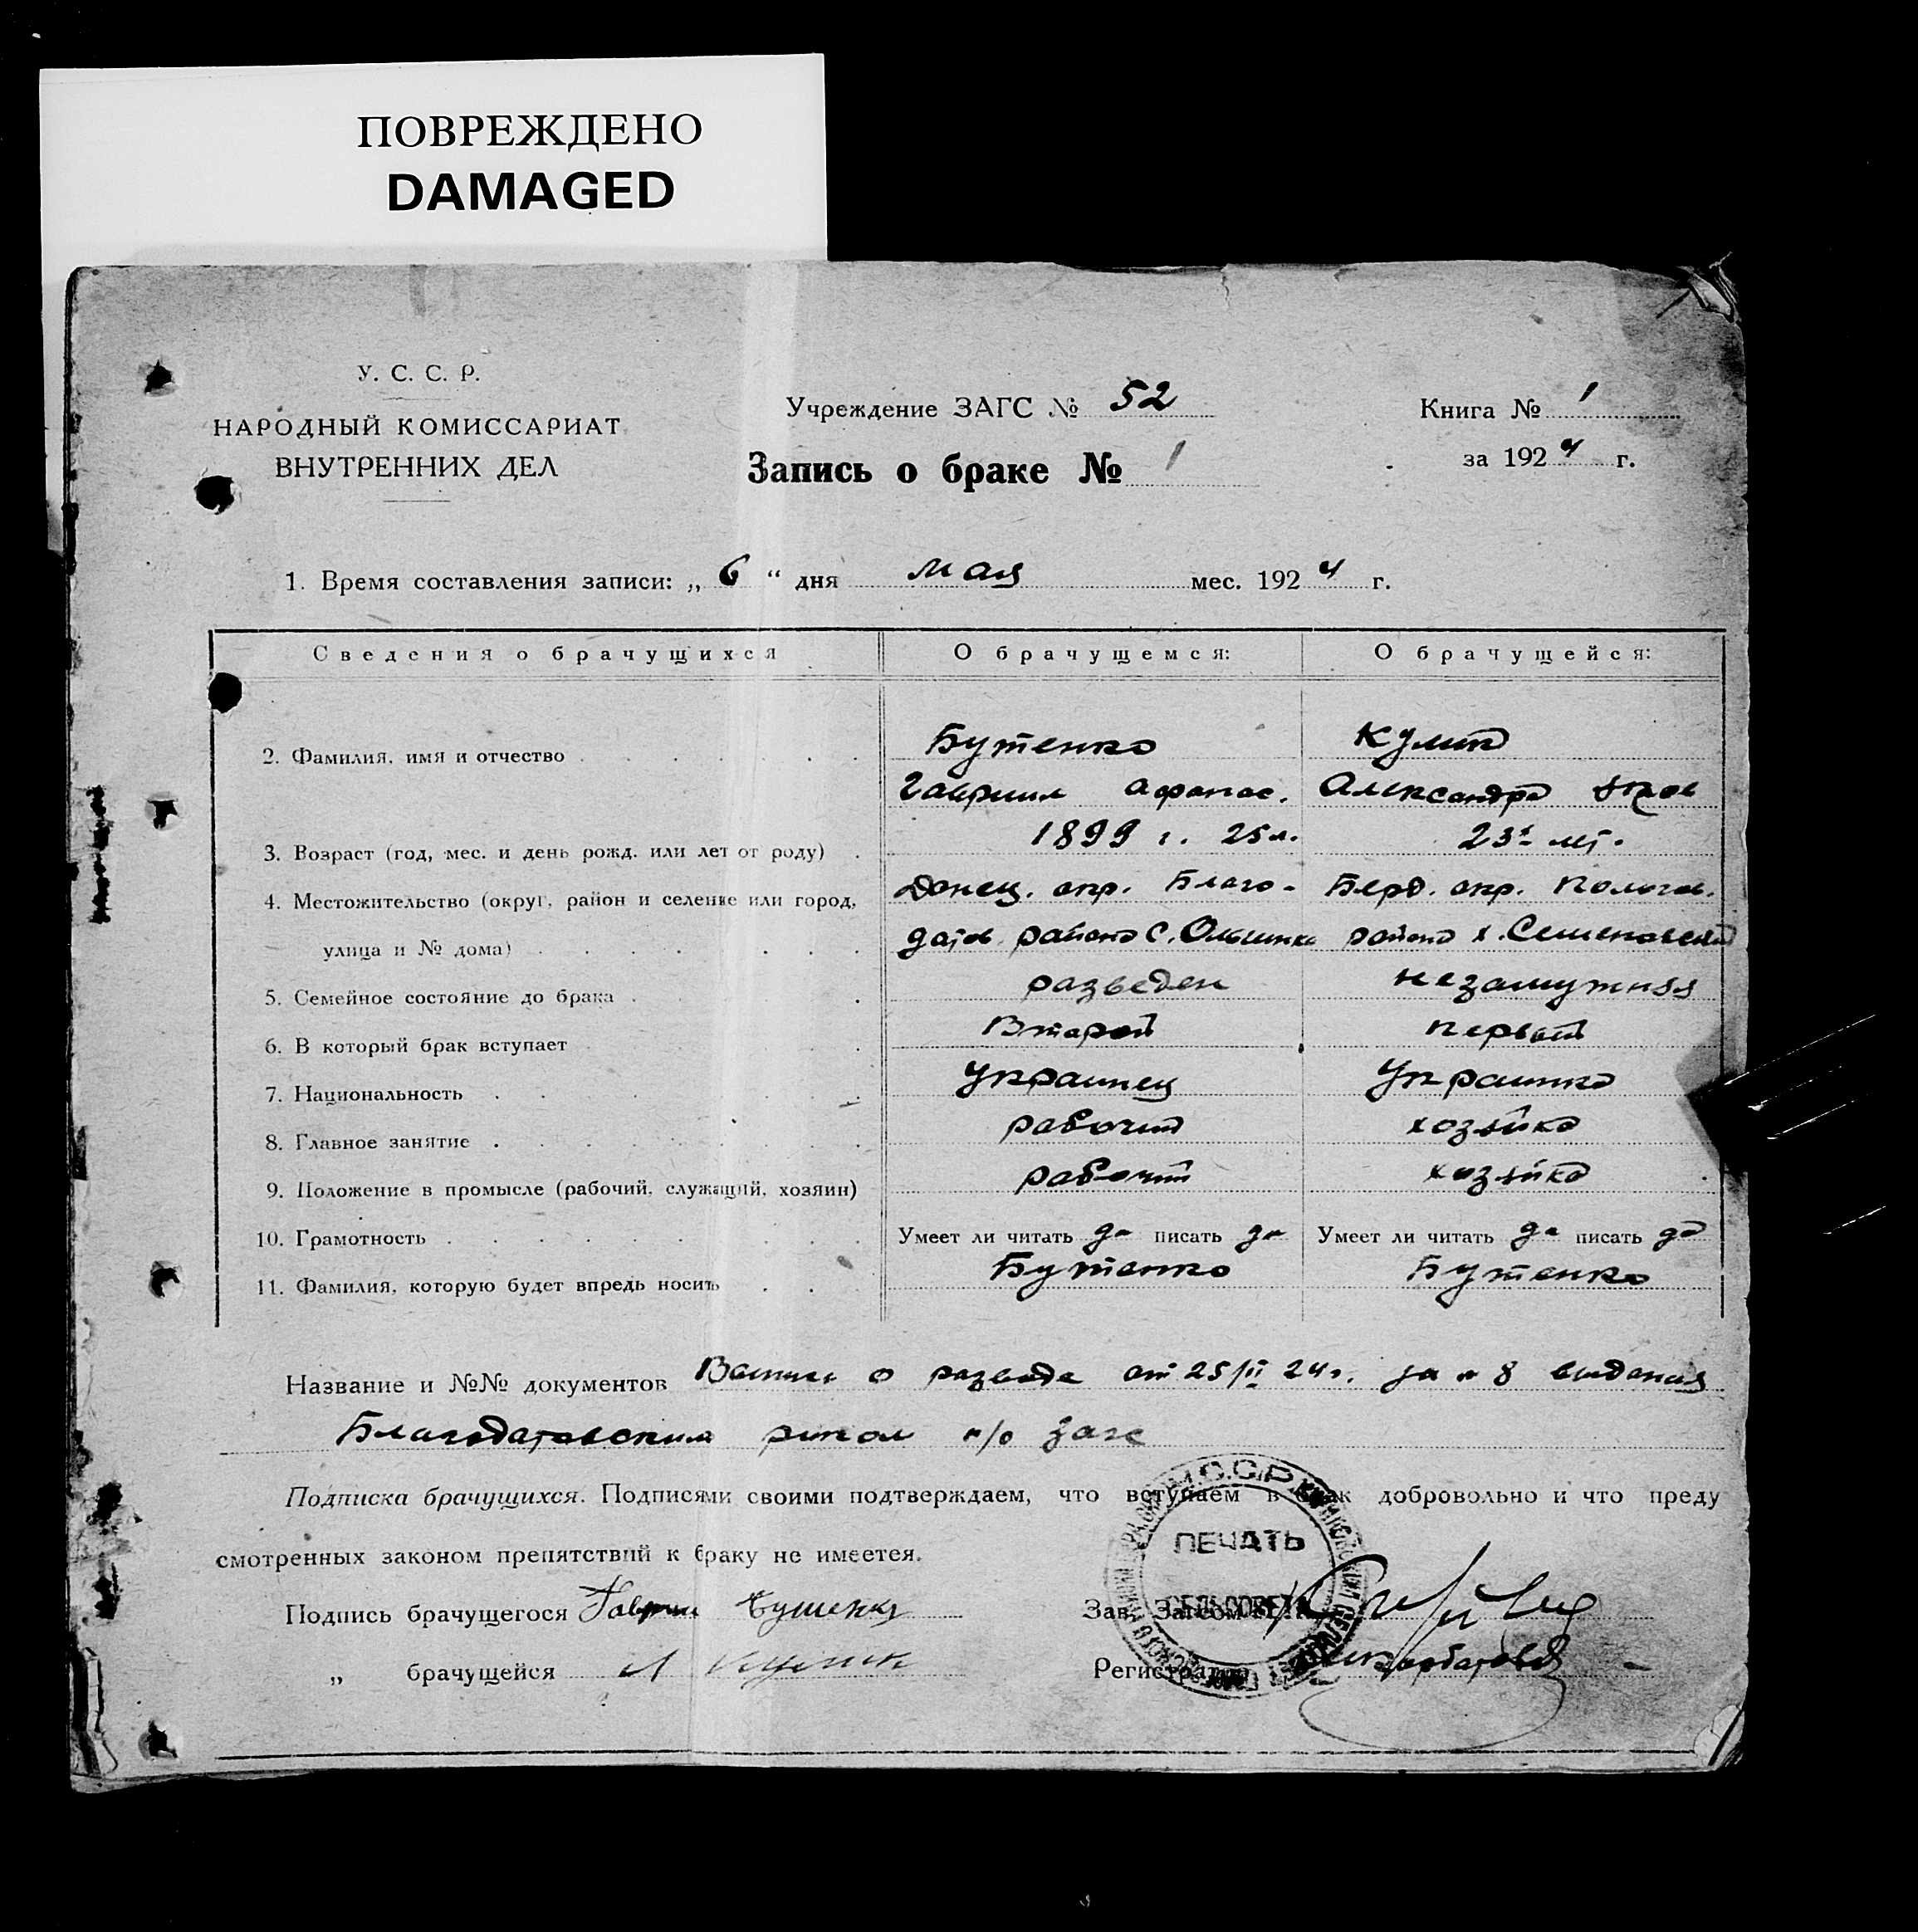 ПОВРЕЖДЕНО
DAMAGED
У. С. С. Р.
НАРОДНЫЙ КОМИССАРИАТ
ВНУТРЕННИХ ДЕЛ
Учреждение ЗАГС № 52
Запись о браке № 1
Книга № 1
за 1924 г.
1. Время составления записи: „ 6 “ дня мая мес. 1924 г.
Сведения о брачущихся О брачущемся: О брачущейся:
2. Фамилия, имя и отчество Бутенко Кулик
Гавриил Афанас. Александра
3. Возраст (год, мес. и день рожд. или лет от роду) 1899 г. 25 л. 23 лет.
4. Местожительство (округ, район и селение или город, Донец. окр. Благо- Берд. окр. Пологов.
улица и № дома) датов. района с. Ольгинка района х. Семеновский
5. Семейное состояние до брака разведен незамужняя
6. В который брак вступает Второй первый
7. Национальность Украинец Украинка
8. Главное занятие рабочий хозяйка
9. Положение в промысле (рабочий, служащий, хозяин) рабочий хозяйка
10. Грамотность Умеет ли читать да писать да Умеет ли читать да писать да
11. Фамилия, которую будет впредь носить Бутенко Бутенко
Название и №№ документов о разводе от 25/II 24 г. за № 8 выданая
Благодатовским риком п/о загс
Подписка брачущихся. Подписями своими подтверждаем, что вступаем в брак добровольно и что преду
смотренных законом препятствий к браку не имеется.
ПЕЧАТЬ
СЕЛЬСОВЕТА
Подпись брачущегося Гавриил Бутенко Зав. Загсом
„ брачущейся А Кулик Регистратор